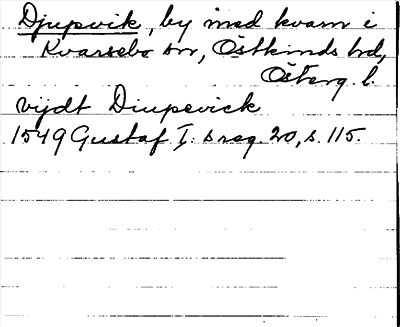 Djupsvik, by med kvarn i
Kvarsebo sn, Östkinds hd,
Österg. l.
vijdt Diupevick
1549 Gustaf I:s reg. 20, s. 115.